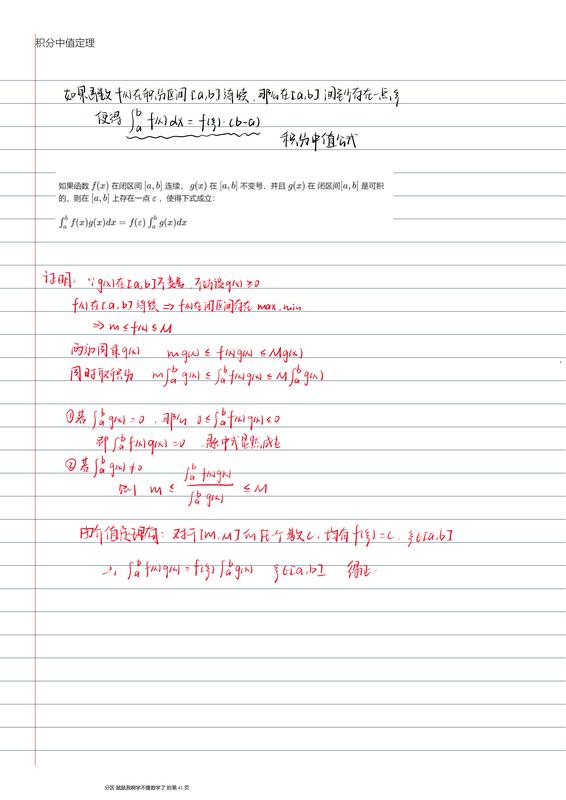 积分中值定理
如果函数 f(x) 在积分区间 [a,b] 连续,那么在 [a,b] 间至少存在一点 ξ
使得 ∫_a^b f(x) dx = f(ξ)·(b-a)
积分中值公式
如果函数 f(x) 在闭区间 [a, b] 连续, g(x) 在 [a, b] 不变号,并且 g(x) 在 闭区间[a, b] 是可积
的,则在 [a, b] 上存在一点 ε ,使得下式成立:
∫_a^b f(x)g(x)dx = f(ε) ∫_a^b g(x)dx
证明: ∵ g(x) 在 [a,b] 不变号,不妨设 g(x) ≥ 0
f(x) 在 [a,b] 连续 ⇒ f(x) 在闭区间存在 max, min
⇒ m ≤ f(x) ≤ M
两边同乘 g(x) m g(x) ≤ f(x) g(x) ≤ M g(x)
同时取积分 m ∫_a^b g(x) ≤ ∫_a^b f(x) g(x) ≤ M ∫_a^b g(x)
① 若 ∫_a^b g(x) = 0 ,那么 0 ≤ ∫_a^b f(x) g(x) ≤ 0
即 ∫_a^b f(x) g(x) = 0 题中式显然成立
② 若 ∫_a^b g(x) ≠ 0
则 m ≤ ∫_a^b f(x) g(x) / ∫_a^b g(x) ≤ M
由介值定理有: 对于 [m, M] 的任一个数 C, 均有 f(ξ) = C, ξ∈[a,b]
∴ ∫_a^b f(x) g(x) = f(ξ) ∫_a^b g(x) ξ∈[a,b] 得证.
分区 鼠鼠我啊学不懂数学了 的第 41 页